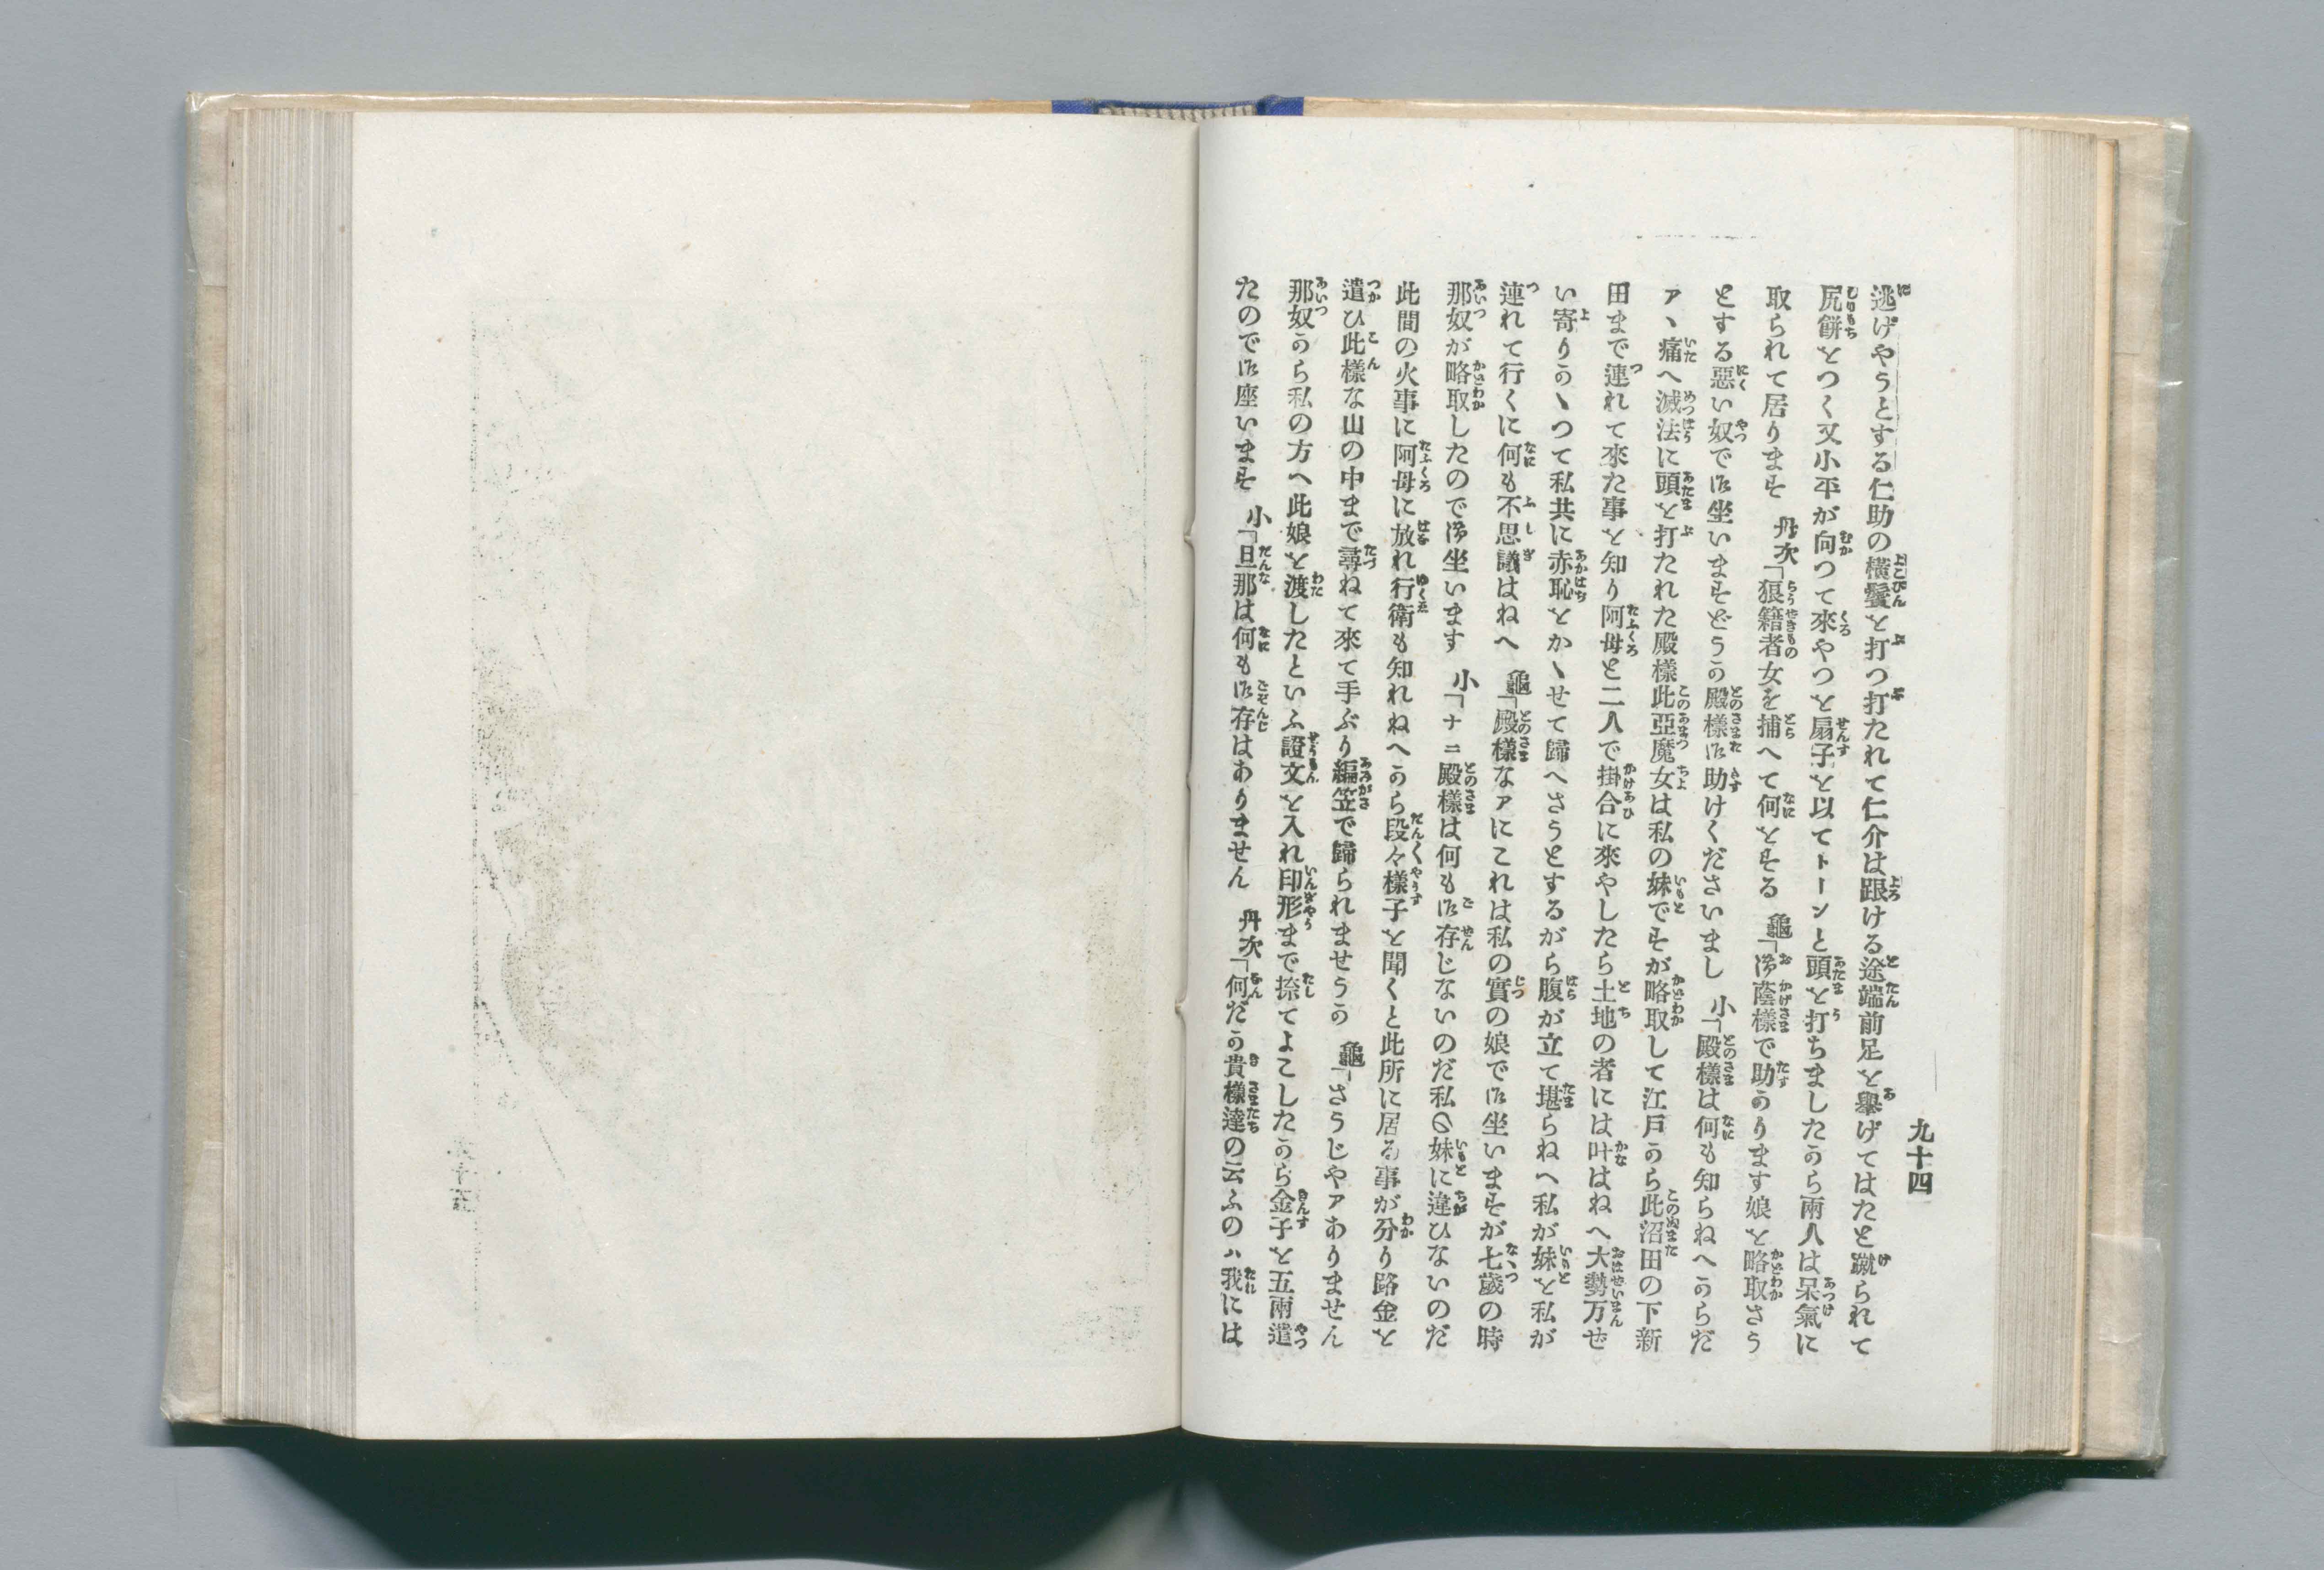 九十四
逃げやうとする仁助の横鬢を打つ打たれて仁介は踉ける途端前足を擧げてはたと蹴られて
尻餅をつく又小平が向つて來やつを扇子を以てトーンと頭を打ちましたから兩人は呆氣に
取られて居ります 丹次「狼籍者女を捕へて何とする 龜「御蔭樣で助かります娘を略取さう
とする惡い奴で御坐いますどうか殿樣御助けくださいまし 小「殿樣は何も知らねへからだ
アヽ痛へ滅法に頭を打たれた殿樣此亞魔女は私の妹ですが略取して江戸から此沼田の下新
田まで連れて來た事を知り阿母と二人で掛合に來やしたら土地の者には叶はねへ大勢万ぜ
い寄りかヽつて私共に赤恥をかヽせて歸へさうとするがら腹が立て堪らねへ私が妹を私が
連れて行くに何も不思議はねへ 龜「殿樣なアにこれは私の實の娘で御坐いますが七歳の時
那奴が略取したので御坐います 小「ナニ殿樣は何も御存じないのだ私の妹に違ひないのだ
此間の火事に阿母に放れ行衛も知れねへから段々樣子を聞くと此所に居る事が分り路金を
遣ひ此樣な山の中まで尋ねて來て手ぶり編笠で歸られませうか 龜「さうじやアありません
那奴から私の方へ此娘を渡したといふ證文を入れ印形まで捺てよこしたから金子を五兩遣
たので御座います 小「旦那は何も御存はありません 丹次「何だか貴樣達の云ふのハ我には